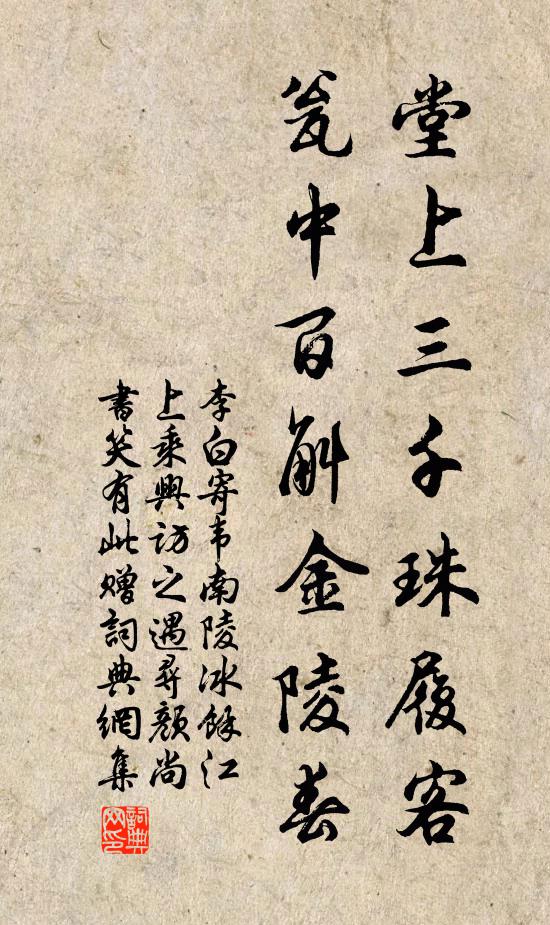 堂上三千珠履客
瓮中百斛金陵春
李白寄韦南陵冰餘江
上乘興访之遇尋颜尚
書笑有此贈詞典網集
詞典網印